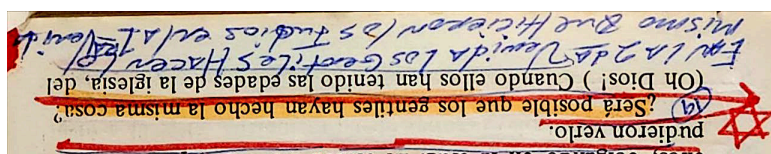 pudieron verlo.
19 ¿Será posible que los gentiles hayan hecho la misma cosa?
(Oh Dios! ) Cuando ellos han tenido las edades de la iglesia, del
En la 2da Venida Los Gentiles Hacen Lo
mismo que Hicieron Los Judíos en la 1ra Venida